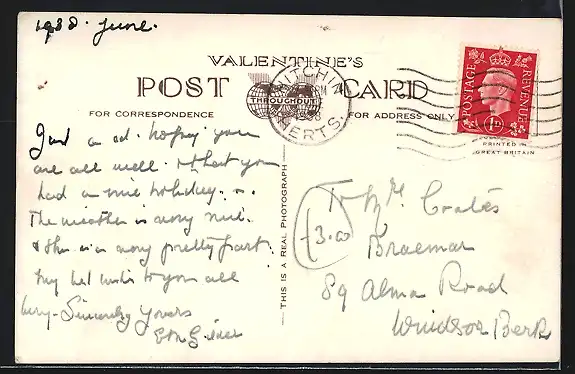 1938. June.
VALENTINE'S
POST CARD
THROUGHOUT
HITCHIN
HERTS.
FOR CORRESPONDENCE
FOR ADDRESS ONLY
POSTAGE
REVENUE
1D
PRINTED IN
GREAT BRITAIN
THIS IS A REAL PHOTOGRAPH
Just a cd. hoping you
are all well. & that you
had a nice holiday.
The weather is very
& this is a very pretty part.
My best wishes to you all
Very Sincerely Yours
To Mrs Coates
Braemar
89 Alma Road
Windsor Berks
3.00